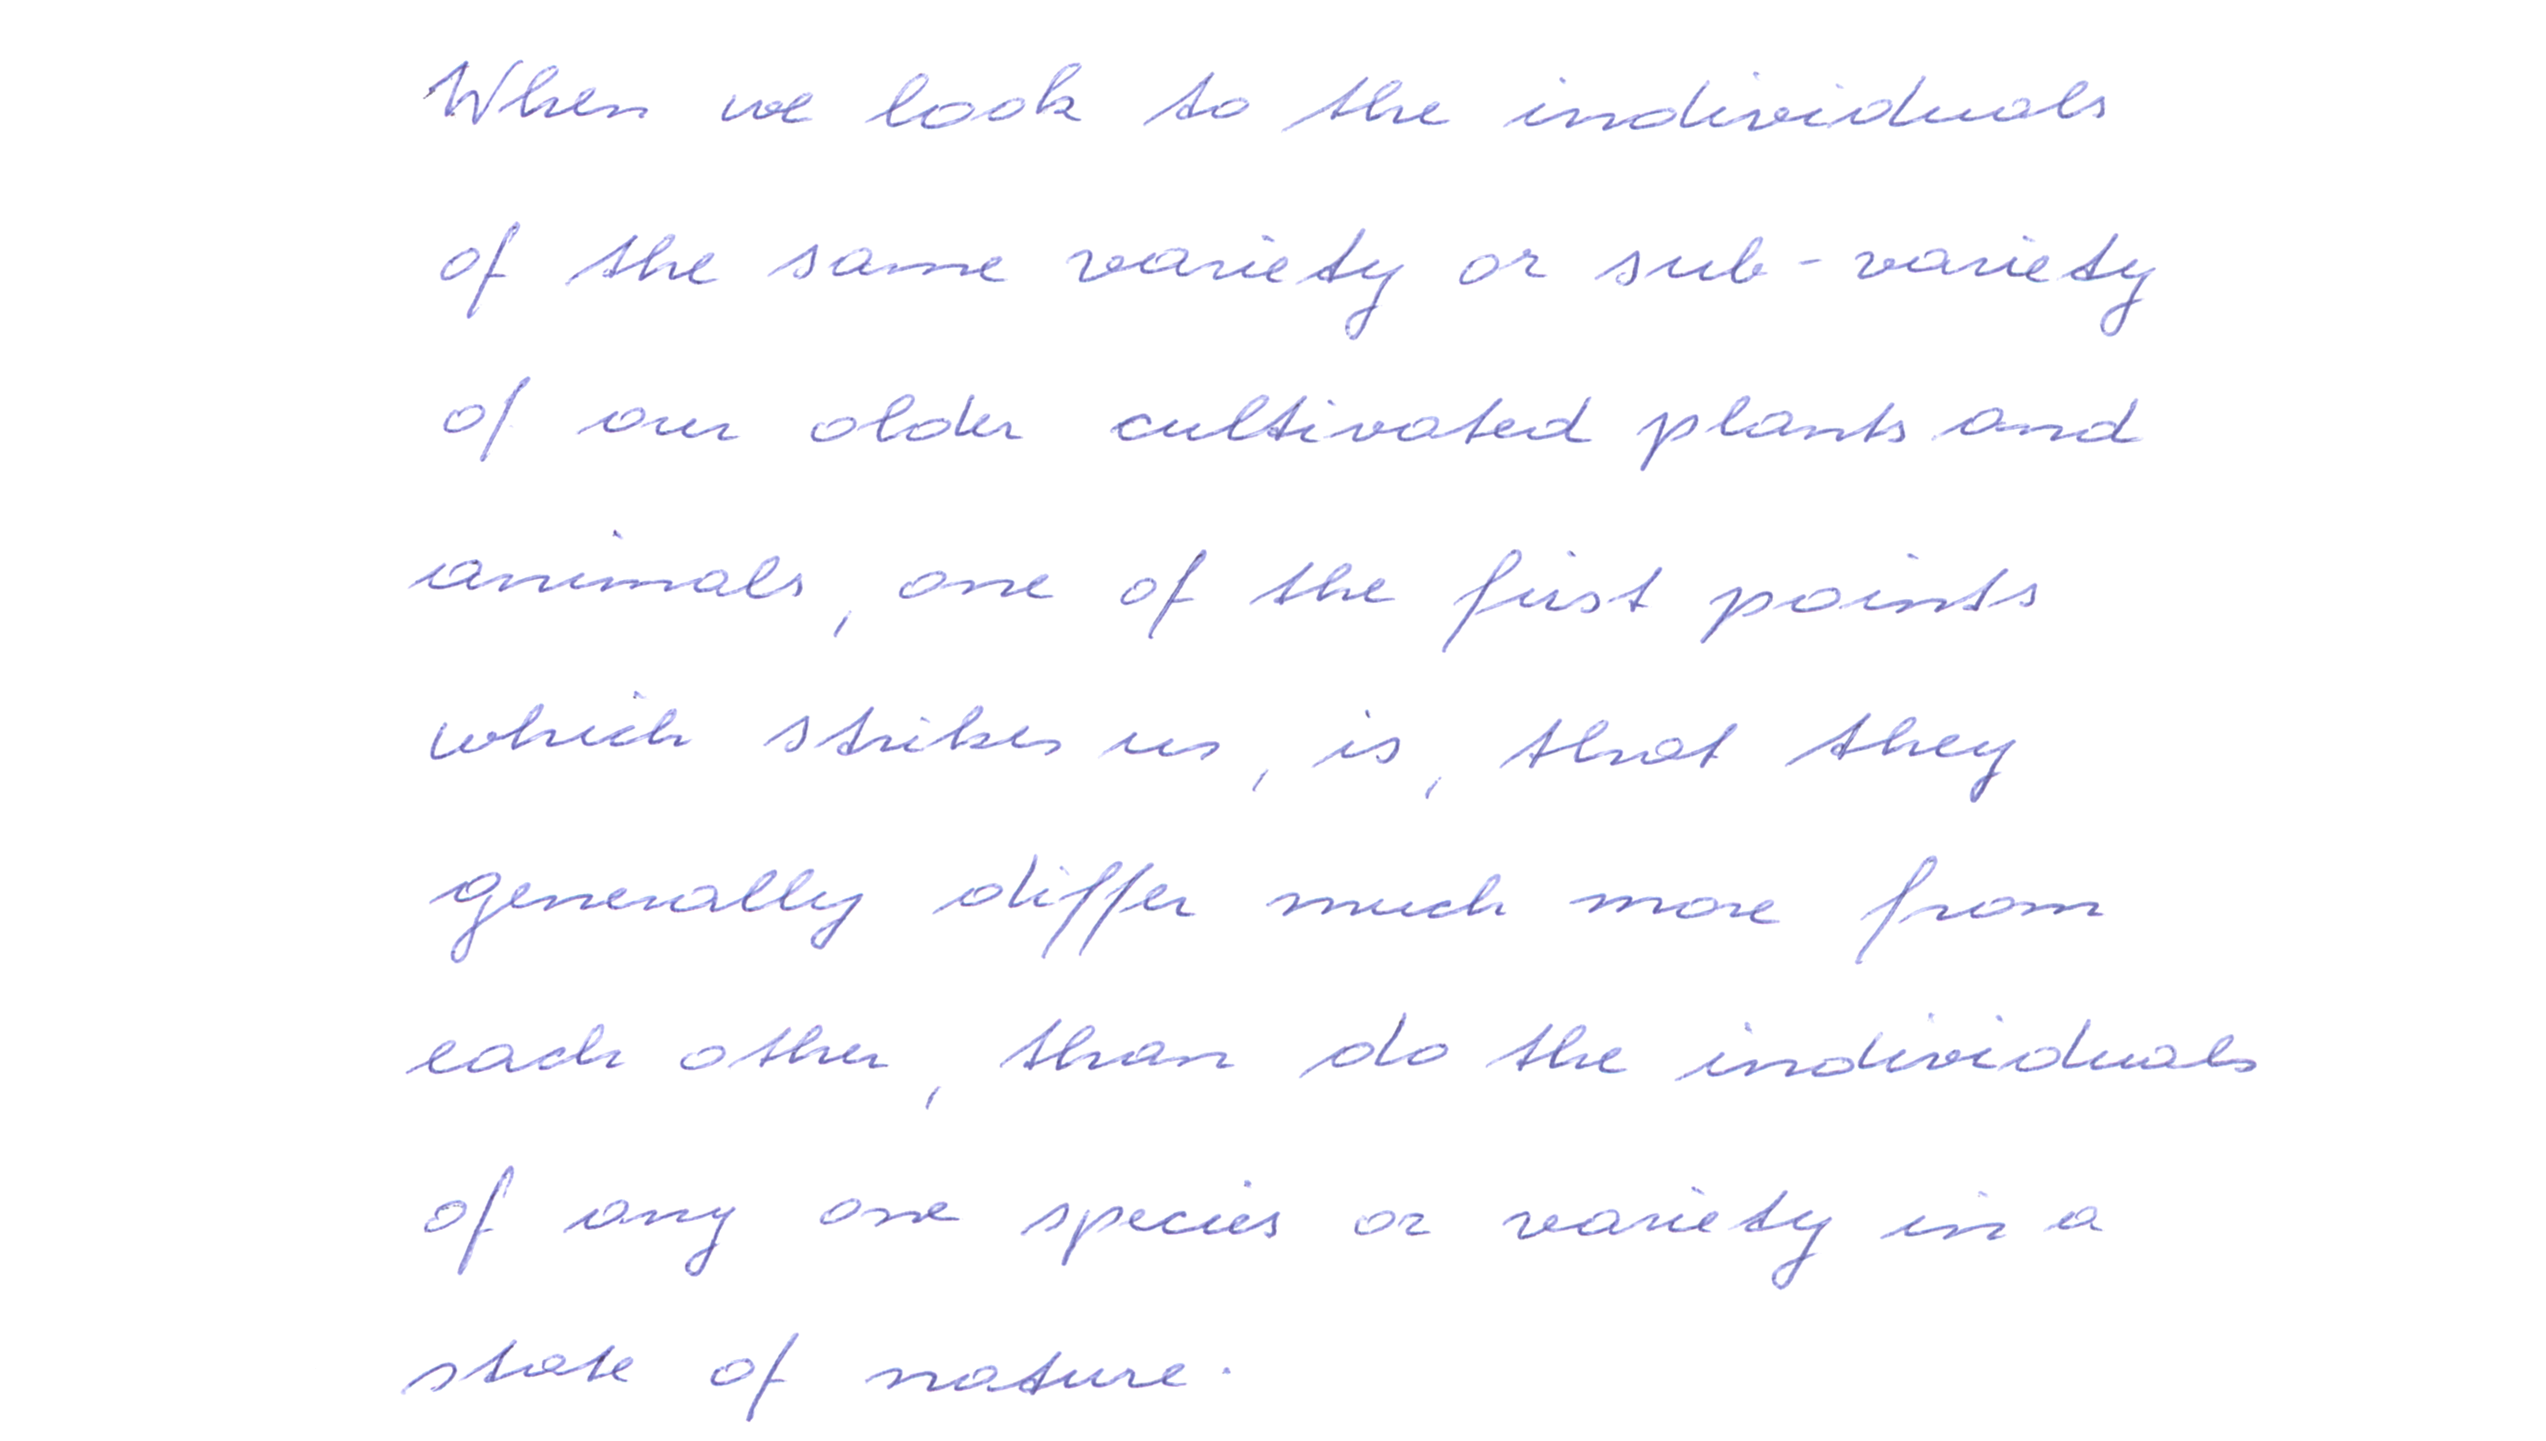 When we look to the individuals
of the same variety or sub-variety
of our older cultivated plants and
animals, one of the first points
which strikes us, is, that they
generally differ much more from
each other, than do the individuals
of any one species or variety in a
state of nature.